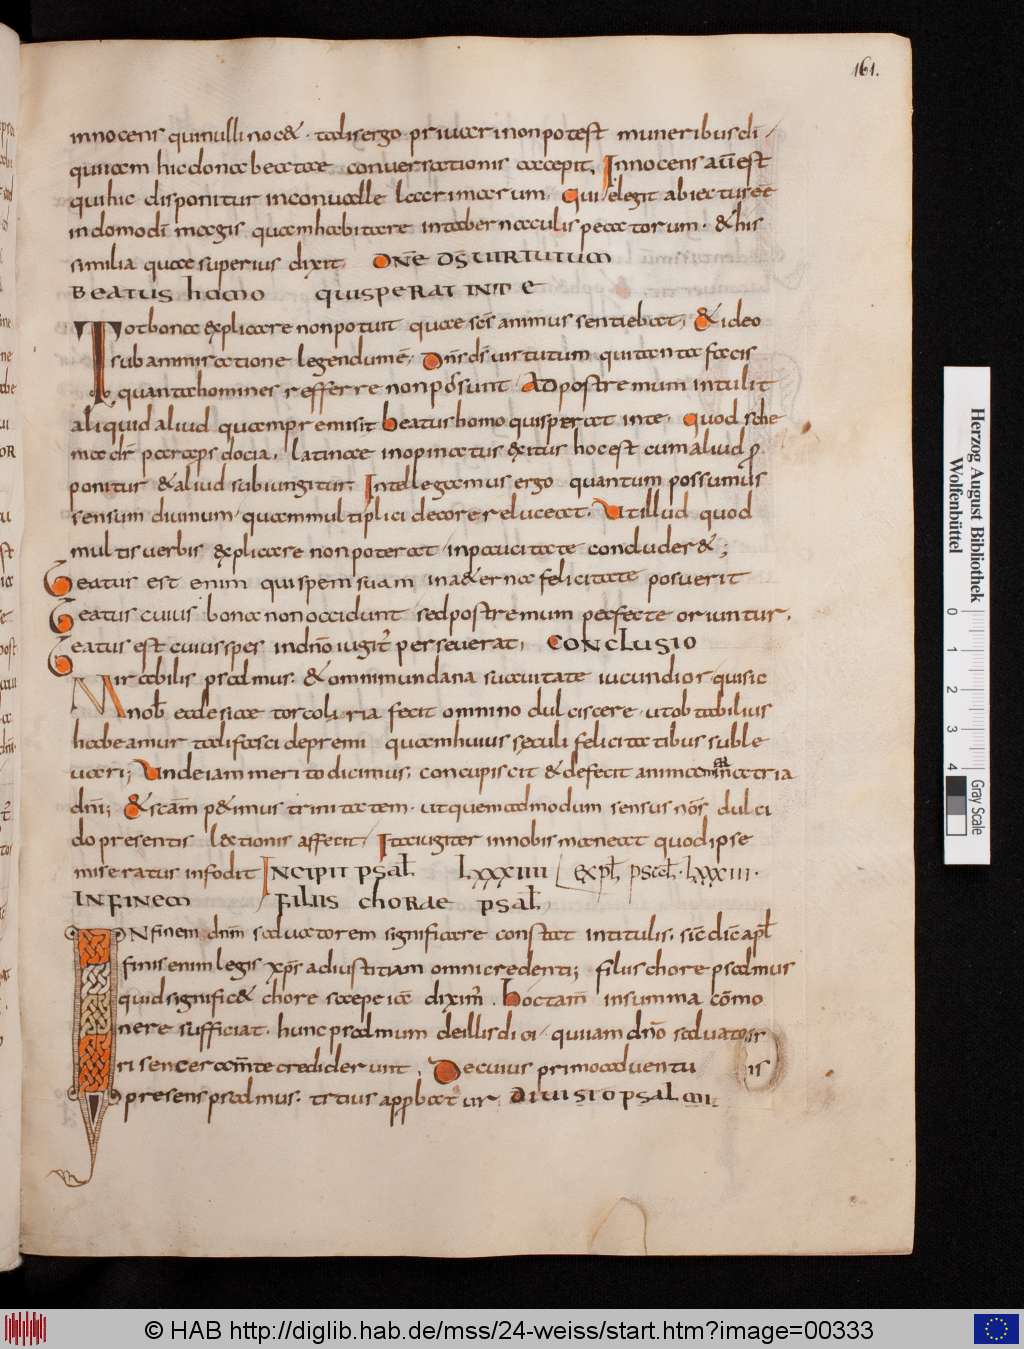 161.
innocens qui nulli nocet · talis ergo privari non potest muneribus dī
qui iam hic dona beatae conversationis accepit. Innocens aūt est
qui hic disponitur in convalle lacrimarum. Qui elegit abiectus ee
in domo dī magis quam habitare in tabernaculis peccatorum · & his
similia quae superius dixit DNE DS VIRTUTUM
BEATUS HOMO QUI SPERAT IN TE
Tot bona explicare non potuit quae scs animus sentiebat; & ideo
sub ammiratione legendum ē, Dns ds virtutum qui tanta facis
quanta homines refferre non possunt. Ad postremum intulit
aliquid aliud quam premisit Beatus homo qui sperat in te. Quod sche
ma dr paraps docia, latinae inopinatus exitus hoc est cum aliud p
ponitur & aliud subiungitur; Intellegamus ergo quantum possumus
sensum divinum, quam multiplici decore reluceat. Ut illud quod
multis verbis explicare non poterat, in paucitate concluderet;
Beatus est enim qui spem suam in aeterna felicitate posuerit
Beatus cuius bona non occidunt sed postremum perfecte oriuntur.
Beatus est cuius spes in dno iugit perseverat, CONCLUSIO
Mirabilis psalmus · & omni mundana suavitate iucundior qui sic
nob ecclesiae torcolaria fecit omnino dulciscere · ut ob tabilius
habeamur tali fasci depremi quam huius seculi felicitatibus suble
vari; Unde iam merito dicimus, concupiscit & defecit anima mea in atria
dni; & scam petimus trinitatem · ut quemadmodum sensus nos dulci
do presentis lectionis affecit, Ita iugiter in nobis maneat quod ipse
miseratus infodit INCIPIT PSAL LXXXIIII Expl psal · LXXXIII ·
IN FINEM FILIIS CHORAE PSAL
IN finem dnm salvatorem significare constat in titulis, sic dic apl
finis enim legis xps ad iustitiam omni credenti; filius chore psalmus
quid significet chore saepe iam dixim. Hoc tam in summa como
nere sufficiat. hunc psalmum de illis dici, qui iam dno salvatori
ri sencer amte crediderunt. De cuius primo adventu is
presens psalmus · tertius approbatur. DIVISIO PSALMI
Herzog August Bibliothek
Wolfenbüttel
0 1 2 3 4
Gray Scale
© HAB http://diglib.hab.de/mss/24-weiss/start.htm?image=00333